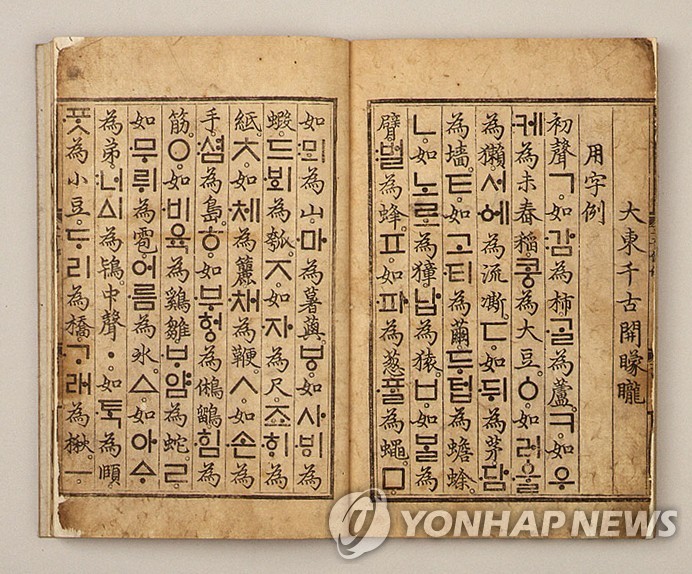 大東千古開矇矓
用字例
初聲ㄱ。如:감為柿。·ᄀᆞᆯ為蘆。ㅋ。如우
·케為未舂稻。콩為大豆。ㆁ。如러·ᅌᅮᆯ
為獺。서·ᅌᅦ為流凘。ㄷ。如·뒤為茅。·담
為墻。ㅌ。如고·티為繭。두텁為蟾蜍。
ㄴ。如노로為獐。납為猿。ㅂ。如ᄇᆞᆯ為
臂。:벌為蜂。ㅍ。如·파為葱。·ᄑᆞᆯ為蠅。ㅁ
如:뫼為山。·마為薯藇。ㅸ。如사·ᄫᅵ為
蝦。드·ᄫᅴ為瓠。ㅈ。如·자為尺。죠·ᄒᆡ為
紙。ㅊ。如·체為簏。·채為鞭。ㅅ。如·손為
手。:셤為島。ㅎ。如·부헝為鵂鶹。·힘為
筋。ㅇ。如·비육為鷄雛。·ᄇᆞ얌為蛇。ㄹ。
如·무뤼為雹。어·름為氷。ㅿ。如아ᅀᆞ
為弟。:너ᅀᅵ為鴇。中聲ㆍ。如·ᄐᆞᆨ為頤。
·ᄑᆞᆺ為小豆。ᄃᆞ리為橋。·ᄀᆞ래為楸。ㅡ
YONHAP NEWS